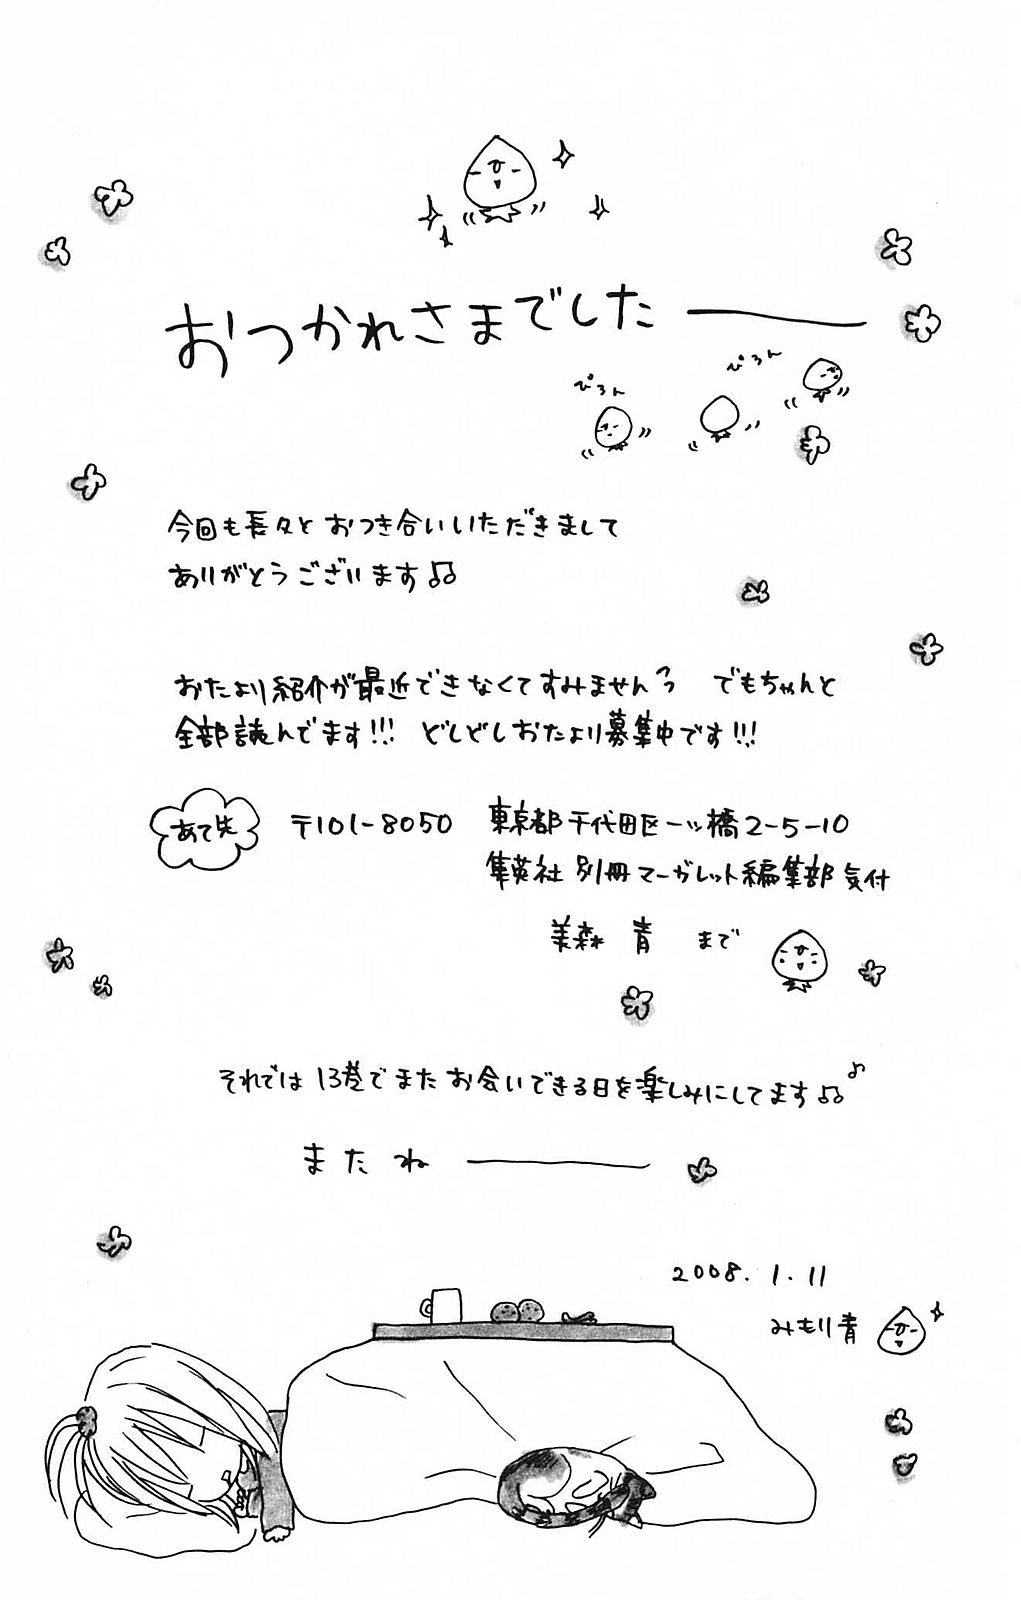 おつかれさまでしたーーー
ぴろん
ぴろん
今回も長々とおつき合いいただきまして
ありがとうございます♫
おたより紹介が最近できなくてすみません でもちゃんと
全部読んでます!!! どしどしおたより募集中です!!!
あて先
〒101-8050 東京都千代田区一ッ橋2-5-10
集英社 別冊マーガレット編集部 気付
美森 青 まで
それでは13巻でまたお会いできる日を楽しみにしてます♫♪
またねーーー
2008.1.11
みもり青